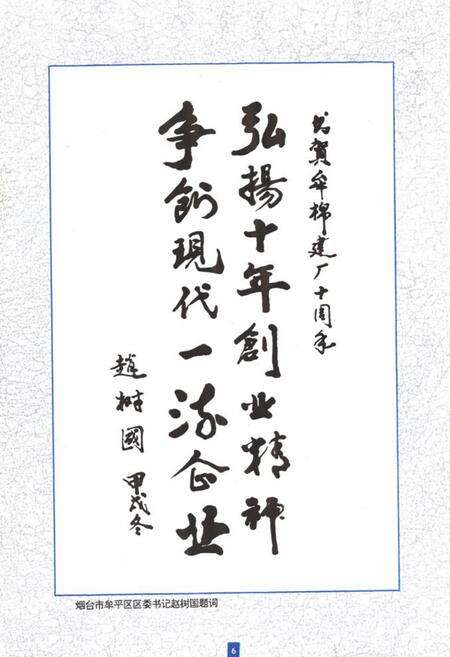 书贺牟棉建厂十周年
弘揚十年創业精神
争創現代一流企业
趙树國 甲戌冬
烟台市牟平区区委书记赵树国题词
6